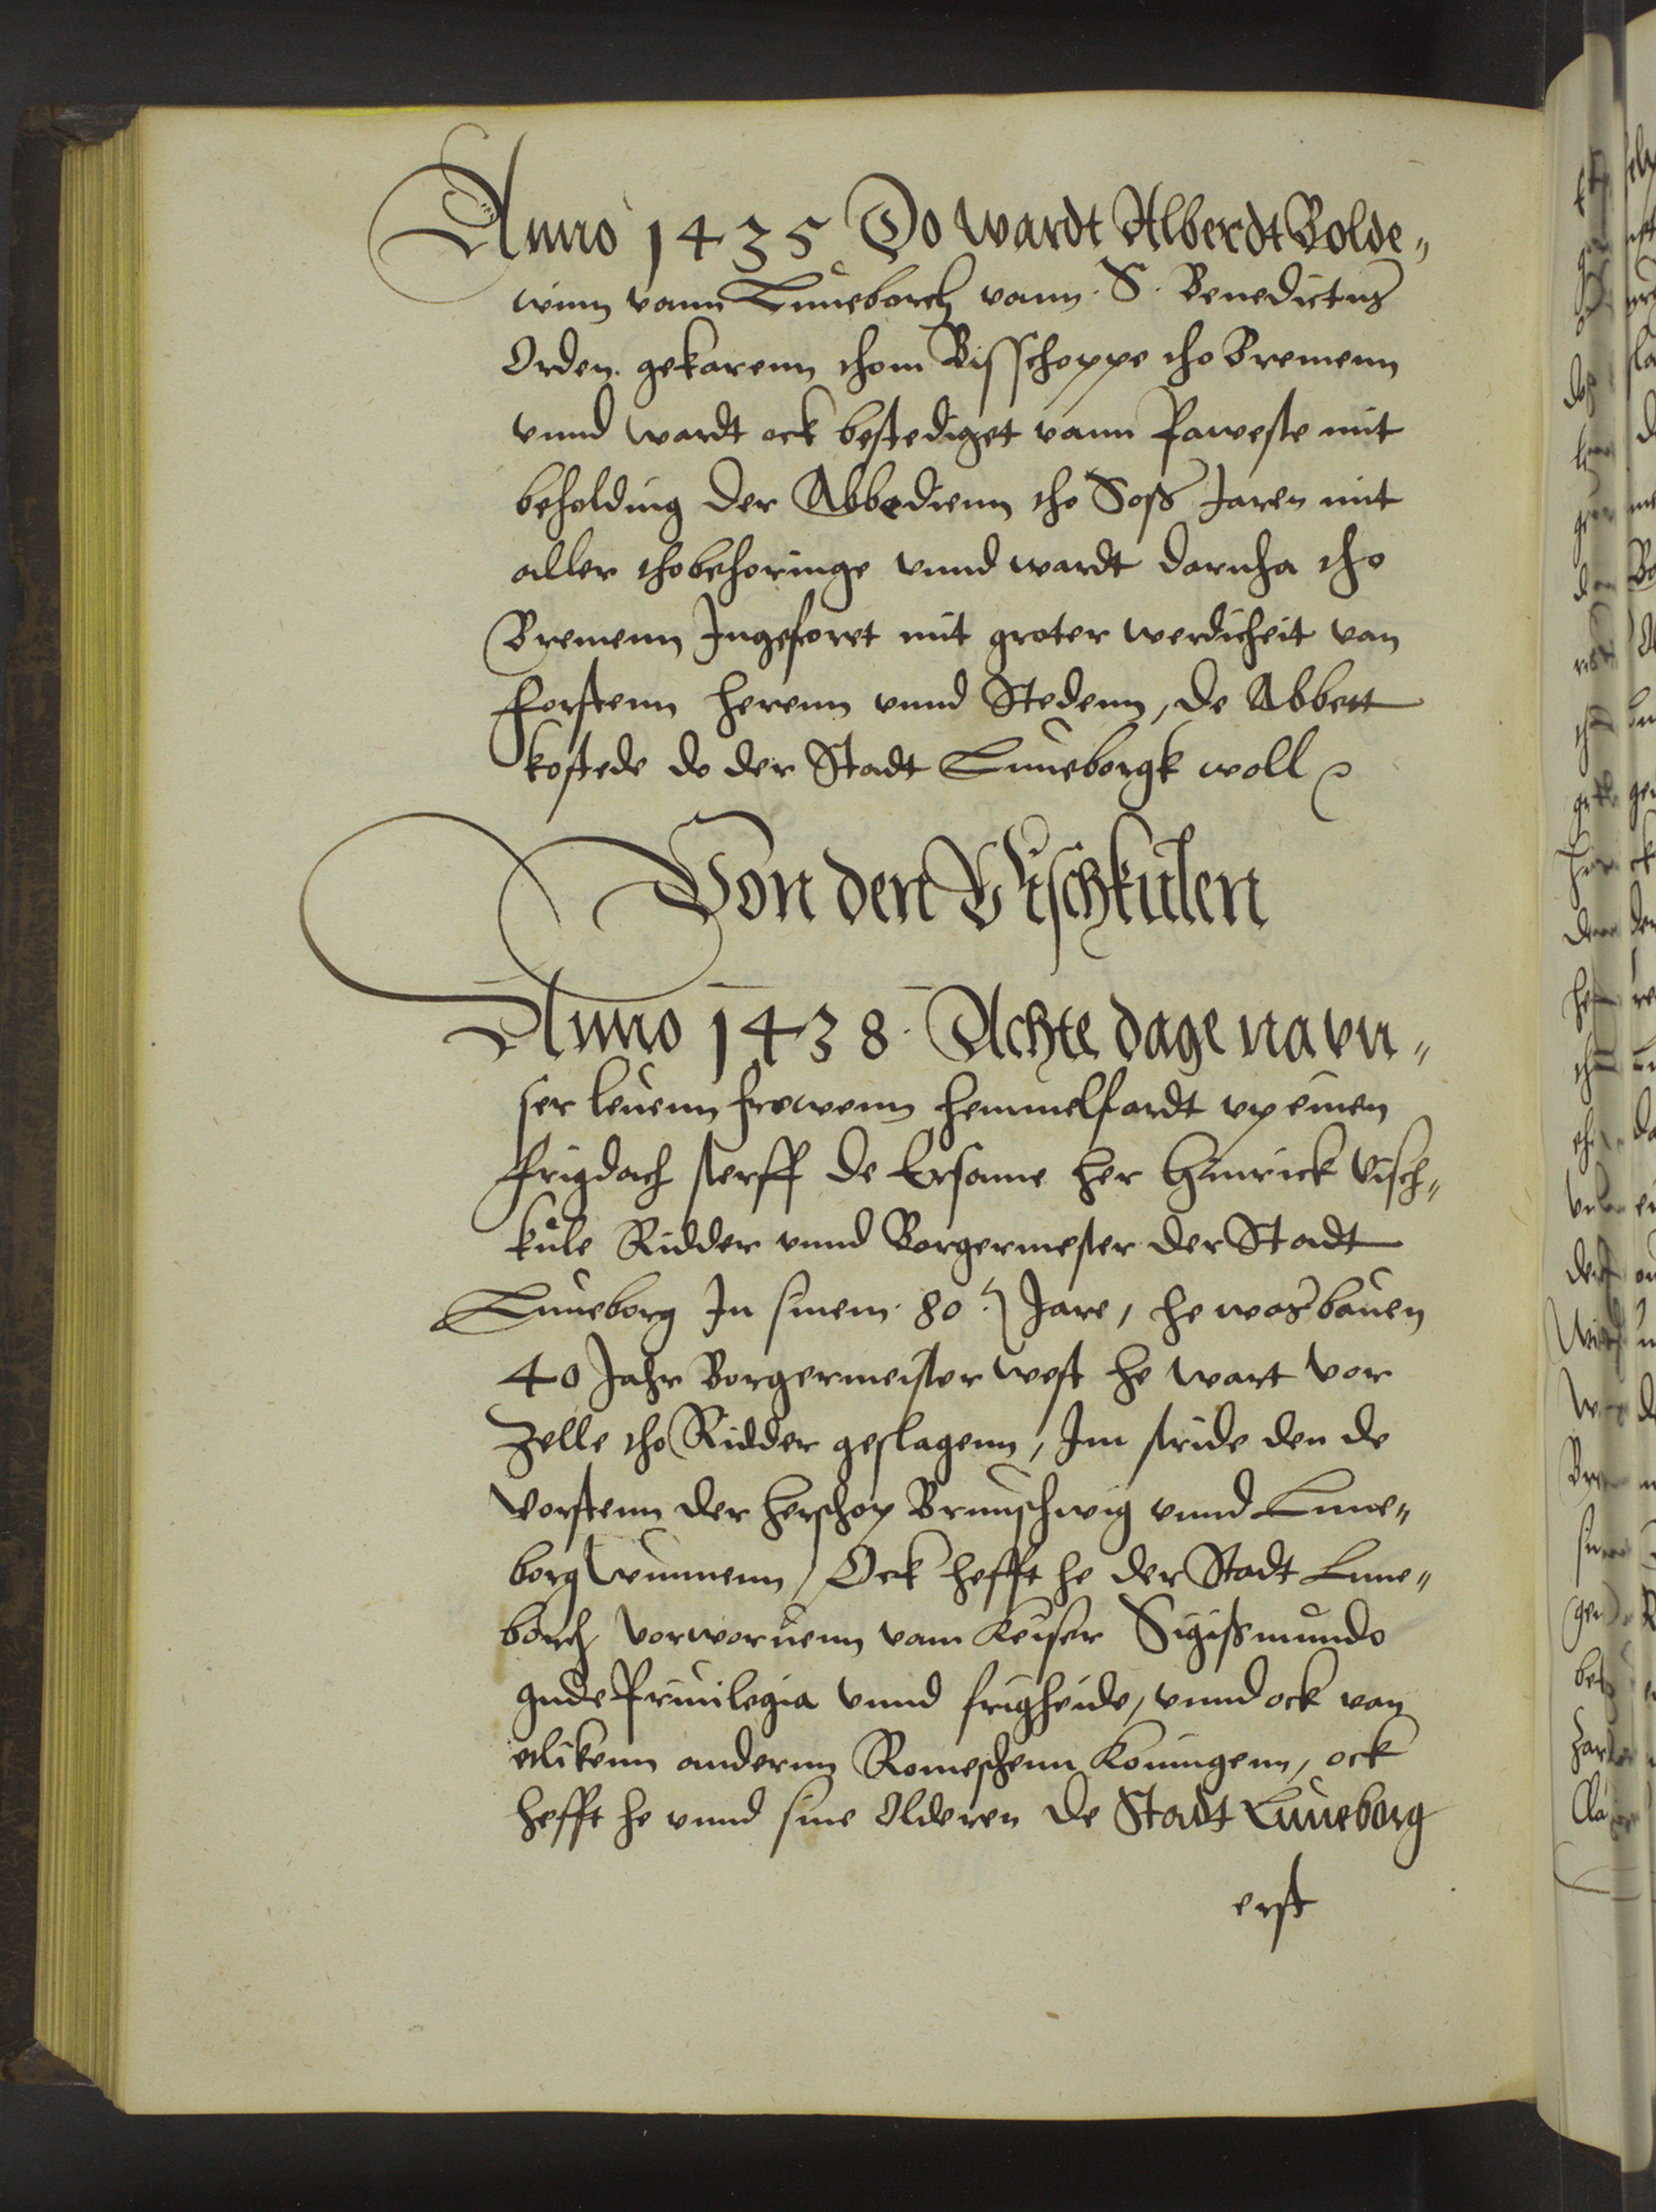 Anno 1435 Do wardt Alberdt Bolde„
winn vann Luneborch vann. S. Benedictus
Orden. gekarenn thom Bisschoppe tho Bremenn
vnnd wardt ock bestediget vann Paweste mit
beholding der Abbedienn tho Soß Jaren mit
aller thobehoringe vnnd wardt darnha tho
Bremenn Ingeforet mit groter werdicheit van
Forstenn herenn vnnd Stedenn, de Abbett
kostede do der Stadt Luneborgk woll
Von den Vischkulen
Anno 1438. Achte dage na vn„
ser leuenn frowenn hemmelfardt vp einen
frigdach sterff de Ersame her Hinrick Visch„
kule Ridder vnnd Borgermester der Stadt
Luneborg In sinem. 80. Jare, he was bauen
40 Jahr Borgermeister west he wart vor
Zelle tho Ridder geslagenn, Im stride den de
Vorstenn der herschop Brunschwig vnnd Lune„
borg wunnenn, Ock hefft he der Stadt Lune„
borch vorworuenn vam Keiser Sigißmundo
gude Priuilegia vnnd frigheide, vnnd ock van
etlikenn anderenn Romeschenn Koningenn, ock
hefft he vnnd sine Olderen de Stadt Luneborg
erst